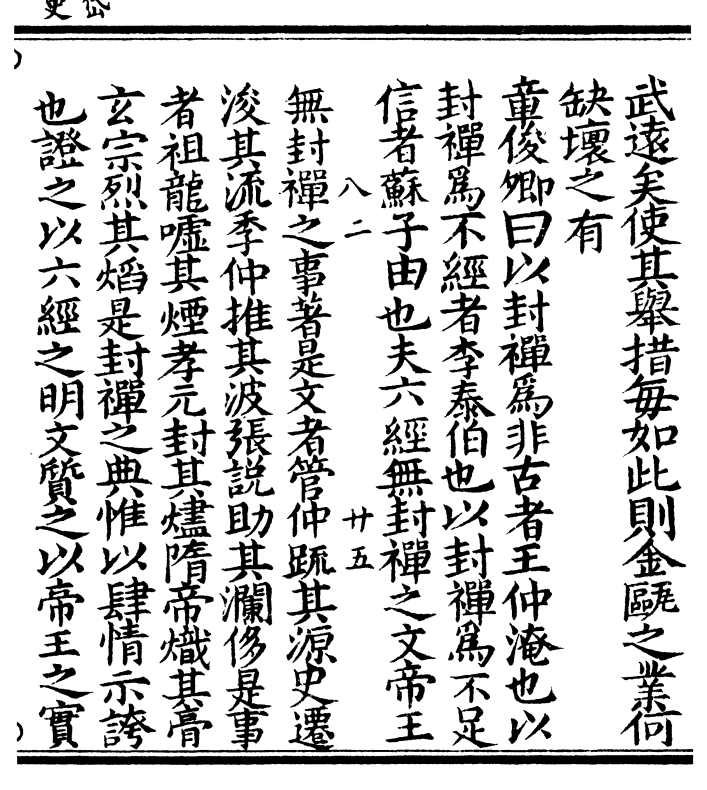 岱
史
武遠矣使其舉措每如此則金甌之業何
缺壞之有
章俊卿曰以封禪爲非古者王仲淹也以
封禪爲不經者李泰伯也以封禪爲不足
信者蘇子由也夫六經無封禪之文帝王
八二
廿五
無封禪之事著是文者管仲䟽其源史遷
浚其流季仲推其波張說助其瀾侈是事
者祖龍噓其煙孝元封其燼隋帝熾其膏
玄宗烈其熖是封禪之典惟以肆情示誇
也證之以六經之明文質之以帝王之實